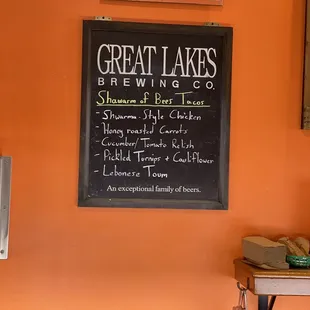 GREAT LAKES
BREWING CO.
Shawarm of Bees Tacos
- Shwarma-Style Chicken
- Honey roasted Carrots
- Cucumber/Tomato Relish
- Pickled Turnips + Cauliflower
- Lebonese Toum
An exceptional family of beers.